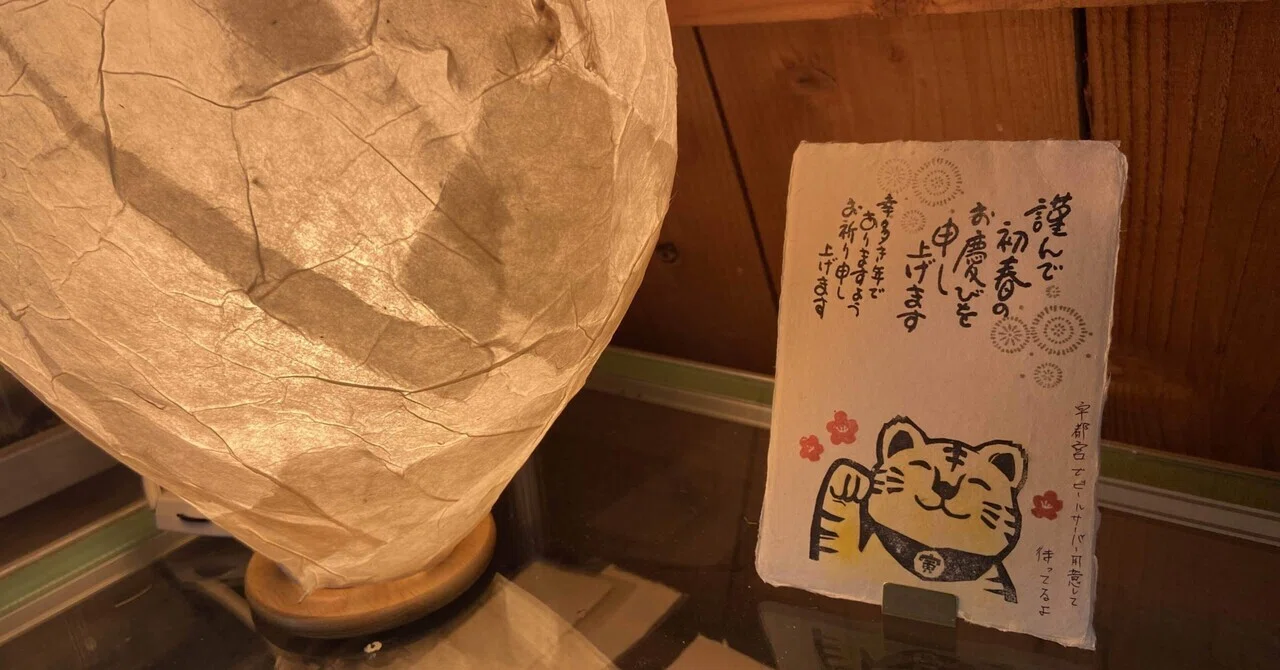 謹んで
初春の
お慶びを
申し
上げます
幸多き年で
ありますよう
お祈り申し
上げます
宇都宮でビールサーバー用意して
待ってるよ
寅